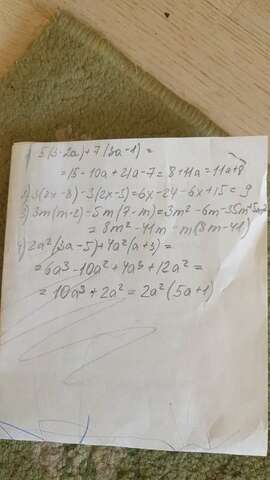 5(3-2a)+7(3a-1)=
=15-10a+21a-7=8+11a=11a+8
2) 3(2x-8)-3(2x-5)=6x-24-6x+15=9
3) 3m(m-2)-5m(7-m)=3m²-6m-35m+5m²=
=8m²-41m=m(8m-41)
4) 2a²(3a-5)+4a²(a+3)=
=6a³-10a²+4a³+12a²=
=10a³+2a²=2a²(5a+1)